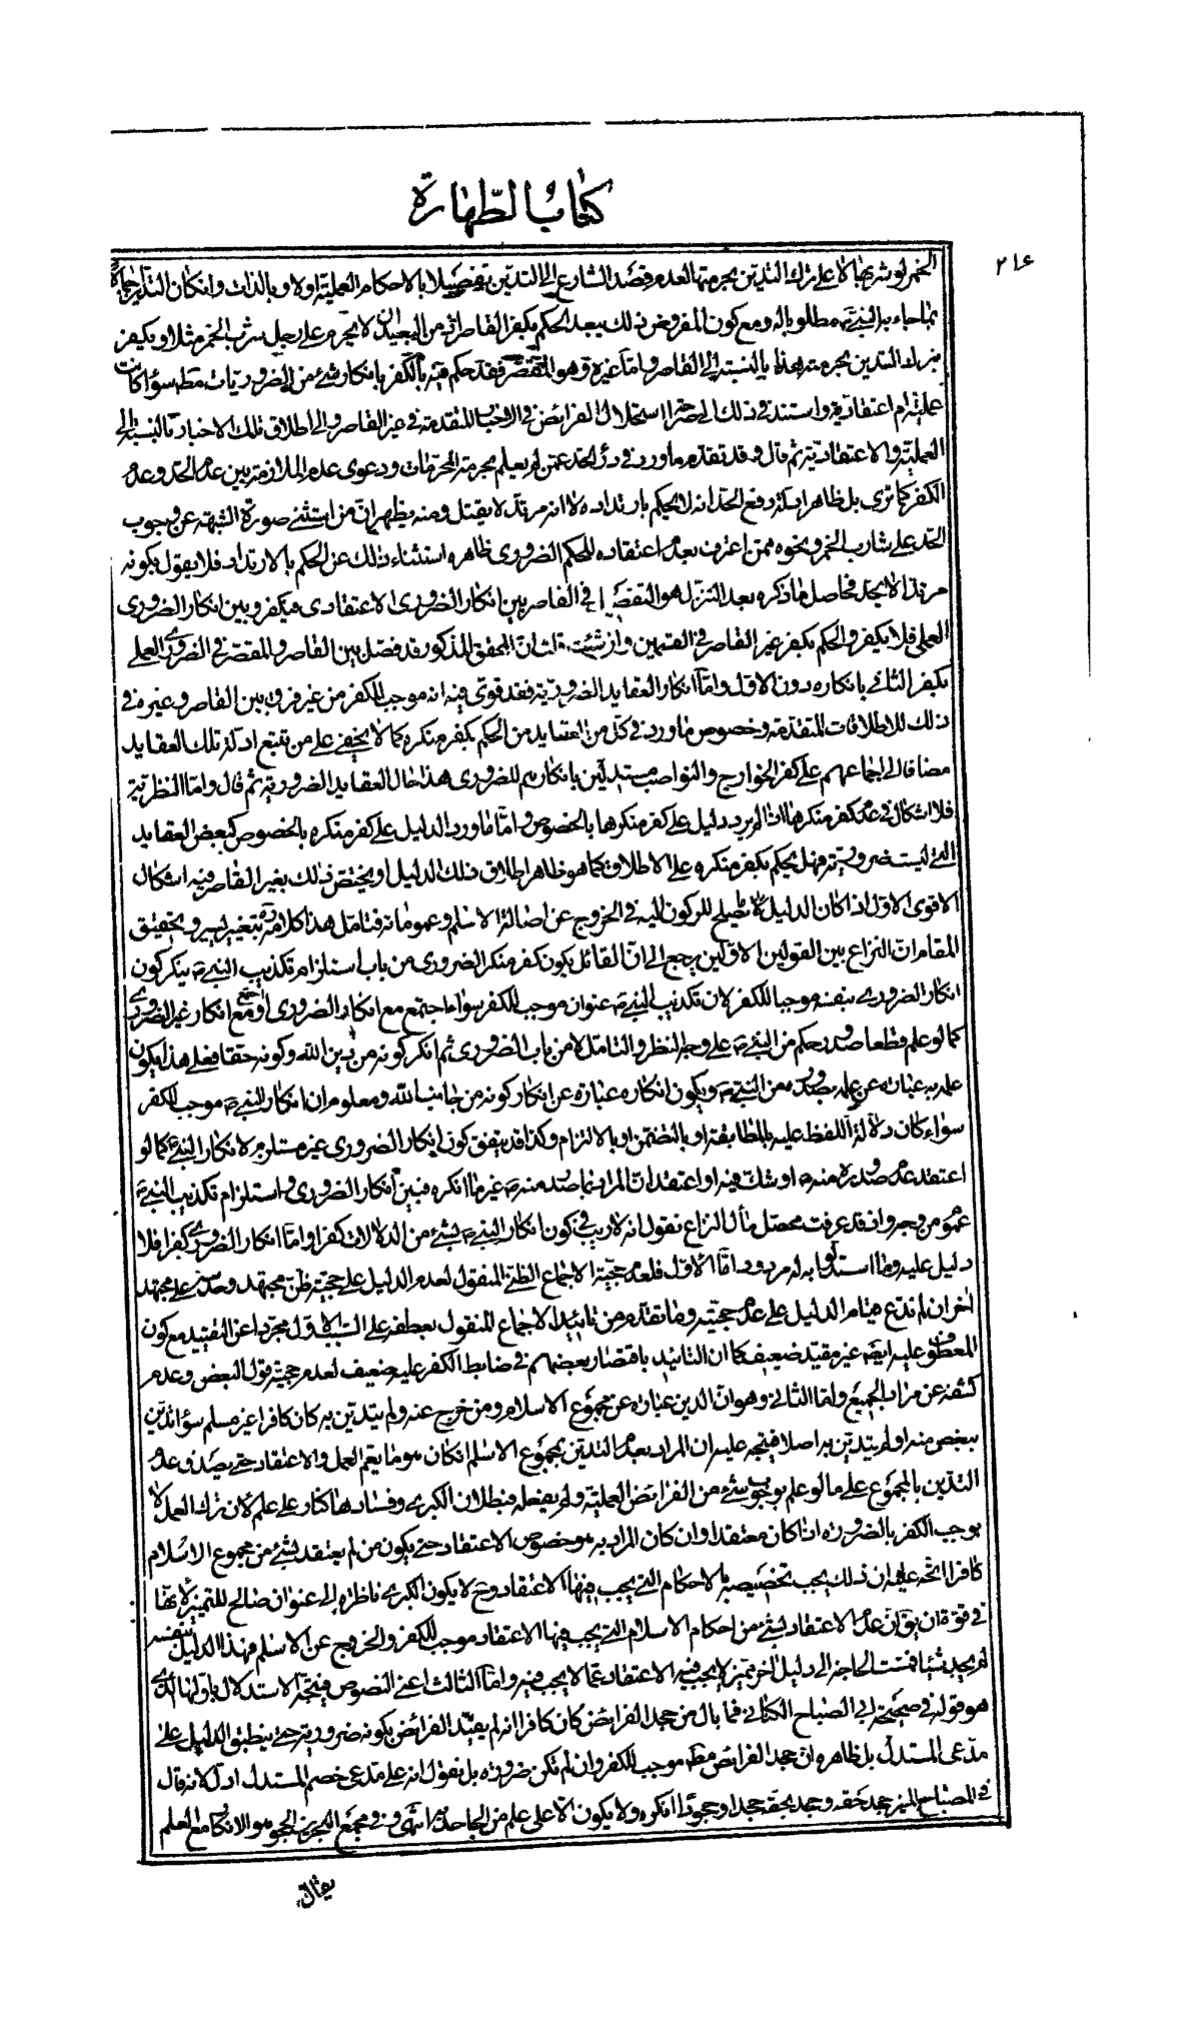 كتاب الطهارة
٢١٤
الخمر لو شربها لا على ترك التدين بحرمتها لعدم قصد الشارع الى التدين تفصيلا بالاحكام العملية اولا وبالذات وان كان التدين اجمالا
بما جاء به النبي ص مطلوبا له ومع كون المفروض ذلك يبعد الحكم بكفر القاصر اذ من البعيد ان لا يحرم على رجل شرب الخمر مثلا ويكفر
بترك التدين بحرمته هذا بالنسبة الى القاصر واما غيره وهو المقصر فقد حكم فيه بالكفر بانكار شئ من الضروريات مط سواء كانت
عملية ام اعتقادية واستند في ذلك الى صراحة استحلال الفرائض في الاخبار المتقدمة في غير القاصر والى اطلاق تلك الاخبار بالنسبة الى
العملية والاعتقادية ثم قال وقد تقدم ما ورد في درء الحد عمن لم يعلم بحرمة المحرمات ودعوى عدم الملازمة بين عدم الحد وعدم
الكفر كما ترى بل ظاهر ادلة دفع الحد انه لا يحكم بارتداده لا انه مرتد لا يقتل ومنه يظهر ان من استثنى صورة الشبهة عن وجوب
الحد على شارب الخمر ونحوه ممن اعترف بعدم اعتقاده للحكم الضروري ظاهره استثناء ذلك عن الحكم بالارتداد فلا يقول بكونه
مرتدا لا يحد فحاصل ما ذكره بعد التنزل هو التفصيل في القاصر بين انكار الضروري الاعتقادي فيكفر وبين انكار الضروري
العملي فلا يكفر والحكم بكفر غير القاصر في القسمين وان شئت قلت ان المحقق المذكور قد فصل بين القاصر والمقصر في الضروري العملي
بكفر الثاني بانكاره دون الاول واما انكار العقايد الضرورية فقد قوى فيه انه موجب للكفر من غير فرق بين القاصر وغيره في
ذلك للاطلاقات المتقدمة وخصوص ما ورد في كل من العقايد من الحكم بكفر منكره كما لا يخفى على من تتبع ادلة تلك العقايد
مضافا الى اجماعهم على كفر الخوارج والنواصب مستدلين بانكارهم للضروري هذا حال العقايد الضرورية ثم قال واما النظرية
فلا اشكال في عدم كفر منكرها اذا لم يرد دليل على كفر منكرها بالخصوص واما ما ورد الدليل على كفر منكره بالخصوص كبعض العقايد
التي ليست ضرورية فهل يحكم بكفر منكره على الاطلاق كما هو ظاهر اطلاق ذلك الدليل او يختص ذلك بغير القاصر فيه اشكال
الاقوى الاول اذا كان الدليل مما يصلح للركون اليه في الخروج عن اصالة الاسلام وعموماته فتامل هذا كلامه ره بتغيير يسير وتحقيق
المقام ان النزاع بين القولين الاولين يرجع الى ان القائل بكون كفر منكر الضروري من باب استلزام تكذيب النبي ص ينكر كون
انكار الضروري بنفسه موجبا للكفر لان تكذيب النبي ص عنوان موجب للكفر سواء اجتمع مع انكار الضروري او اجتمع مع انكار غير الضروري
كما لو علم قطعا صدور حكم من النبي ص على وجه النظر والتامل لا من باب الضروري ثم انكر كونه من دين الله وكونه حقا فعلى هذا يكون
علمه به عبارة عن علمه بصدوره من النبي ص ويكون انكاره عبارة عن انكار كونه من جانب الله ومعلوم ان انكار النبي ص موجب للكفر
سواء كان دلالة اللفظ عليه بالمطابقة او بالتضمن او بالالتزام وكذا قد يتفق كون انكار الضروري غير مستلزم لانكار النبي ص كما لو
اعتقد عدم صدوره منه ص او شك فيه او اعتقد ان المراد بما صدر منه ص غير ما انكره فبين انكار الضروري واستلزام تكذيب النبي ص
عموم من وجه واذ قد عرفت محصل مال النزاع نقول انه لا ريب في كون انكار النبي ص بشئ من الدلالات كفرا واما انكار الضروري كفرا فلا
دليل عليه وما استدلوا به له مردود اما الاول فلعدم حجية الاجماع الظني المنقول لعدم الدليل على حجية ظن مجتهد وحدسه على مجتهد
اخر ان لم ندع قيام الدليل على عدم حجيته وما تقدم من تاييد الاجماع المنقول بعطفه على السبب الاول مجردا عن التقييد مع كون
المعطوف عليه ايضا غير مقيد ضعيف كما ان التاييد باقتصار بعضهم في ضابط الكفر عليه ضعيف لعدم حجية قول البعض وعدم
كشفه عن مراد الجميع واما الثاني وهو ان الدين عبارة عن مجموع الاسلام ومن خرج عنه ولم يتدين به كان كافرا غير مسلم سواء تدين
ببعض منه او لم يتدين به اصلا فيتجه عليه ان المراد بعدم التدين بمجموع الاسلام ان كان هو ما يعم العمل والاعتقاد حتى يصدق عدم
التدين بالمجموع على ما لو علم بوجوب شئ من الفرائض العملية ولم يفعله فبطلان الكبرى وفسادها كنار على علم لان ترك العمل لا
يوجب الكفر بالضرورة اذا كان معتقدا وان كان المراد به هو خصوص الاعتقاد حتى يكون من لم يعتقد بشئ من مجموع الاسلام
كافرا اتجه عليه ان ذلك يجب تخصيصه بالاحكام التي يجب فيها الاعتقاد وح لا يكون الكبرى ناظرة الى عنوان صالح للتميز لانها
في قوة ان يق ان عدم الاعتقاد بشئ من احكام الاسلام التي يجب فيها الاعتقاد موجب للكفر والخروج عن الاسلام فهذا الدليل بنفسه
لم يجد شيئا فمست الحاجة الى دليل اخر تميز لا يجب فيه الاعتقاد عما لا يجب فيه واما الثالث اعني النصوص فيتجه الاستدلال باولها الذي
هو قوله في صحيحة ابي الصباح الكناني فما بال من جحد الفرائض كان كافرا انه لم يقيد الفرائض بكونه ضرورية حتى ينطبق الدليل على
مدعى المستدل بل ظاهره ان جحد الفرائض مط موجب للكفر وان لم تكن ضرورة بل نقول انه على مدعى خصم المستدل ادل لانه قال
في المصباح المنير جحد حقه وجحد بحقه جحدا وجحودا انكره ولا يكون الا على علم من الجاحد به انتهى وفي مجمع البحرين الجحود هو الانكار مع العلم
يقال